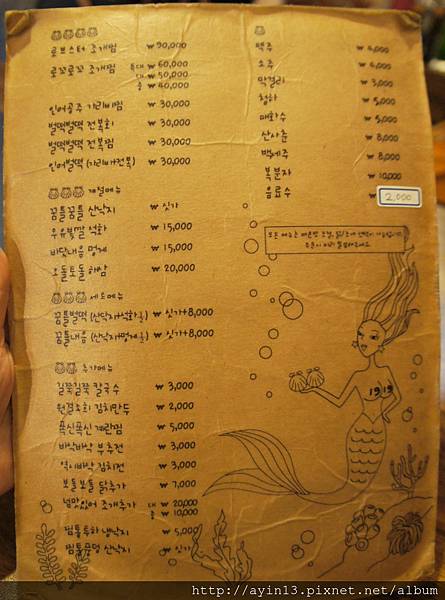 로브스터 조개찜 ₩ 90,000
로꼬로꼬 조개찜 특대 ₩ 60,000
대 ₩ 50,000
중 ₩ 40,000
인어공주 가리비찜 ₩ 30,000
벌떡벌떡 전복회 ₩ 30,000
벌떡벌떡 전복찜 ₩ 30,000
인어벌떡 (가리비+전복) ₩ 30,000
계절메뉴
꿈틀꿈틀 산낙지 ₩ 싯가
우유빛깔 석화 ₩ 15,000
바닷내음 멍게 ₩ 15,000
오돌토돌 해삼 ₩ 20,000
세트메뉴
꿈틀벌떡 (산낙지+석화) ₩ 싯가+8,000
꿈틀내음 (산낙지+멍게) ₩ 싯가+8,000
추가메뉴
길쭉길쭉 칼국수 ₩ 3,000
김치만두 ₩ 2,000
폭신폭신 계란찜 ₩ 5,000
바삭바삭 부추전 ₩ 3,000
김치전 ₩ 3,000
보들보들 닭추가 ₩ 7,000
넘맛있어 조개추가 대 ₩ 20,000
중 ₩ 10,000
낙지 ₩ 5,000
산낙지 ₩ 싯가
맥주 ₩ 4,000
소주 ₩ 4,000
막걸리 ₩ 3,000
청하 ₩ 5,000
매화수 ₩ 5,000
산사춘 ₩ 8,000
백세주 ₩ 8,000
복분자 ₩ 10,000
음료수 2,000
1919
http://ayin13.pixnet.net/album